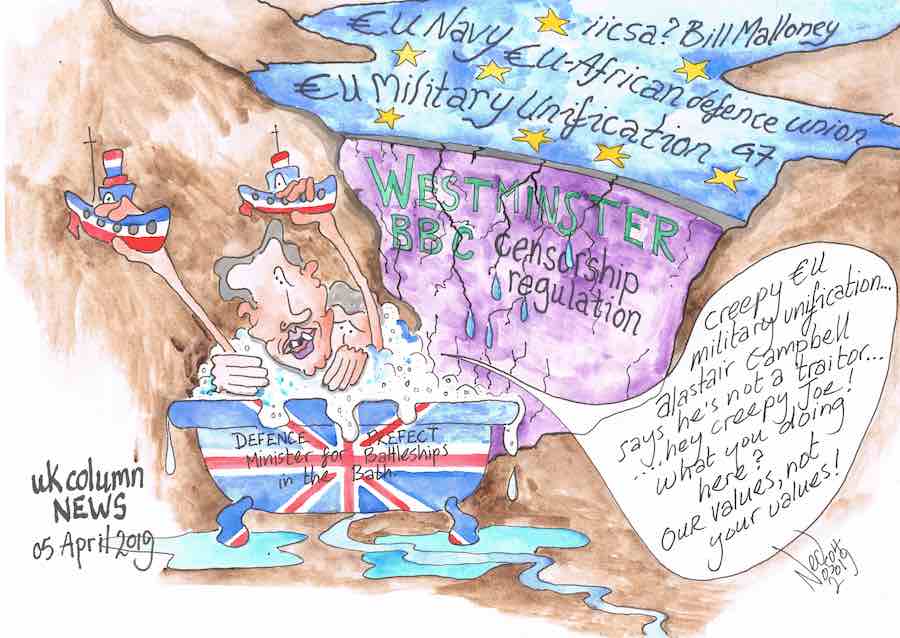 €U Navy
€U-African defence union
iicsa? Bill Malloney
€U Military Unification G7
WESTMINSTER
BBC
censorship
regulation
creepy €U
military unification...
alastair Campbell
says he's not a traitor...
...hey creepy Joe!
what you doing
here?
our values, not
your values!
DEFENCE PREFECT
Minister for Battleships
in the Bath
uk column
NEWS
05 April 2019
2019